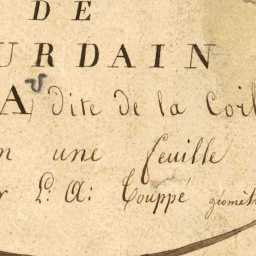 DE
URDAIN
A, dite de la Coil
n une feuille
r L: A: Couppé géomét